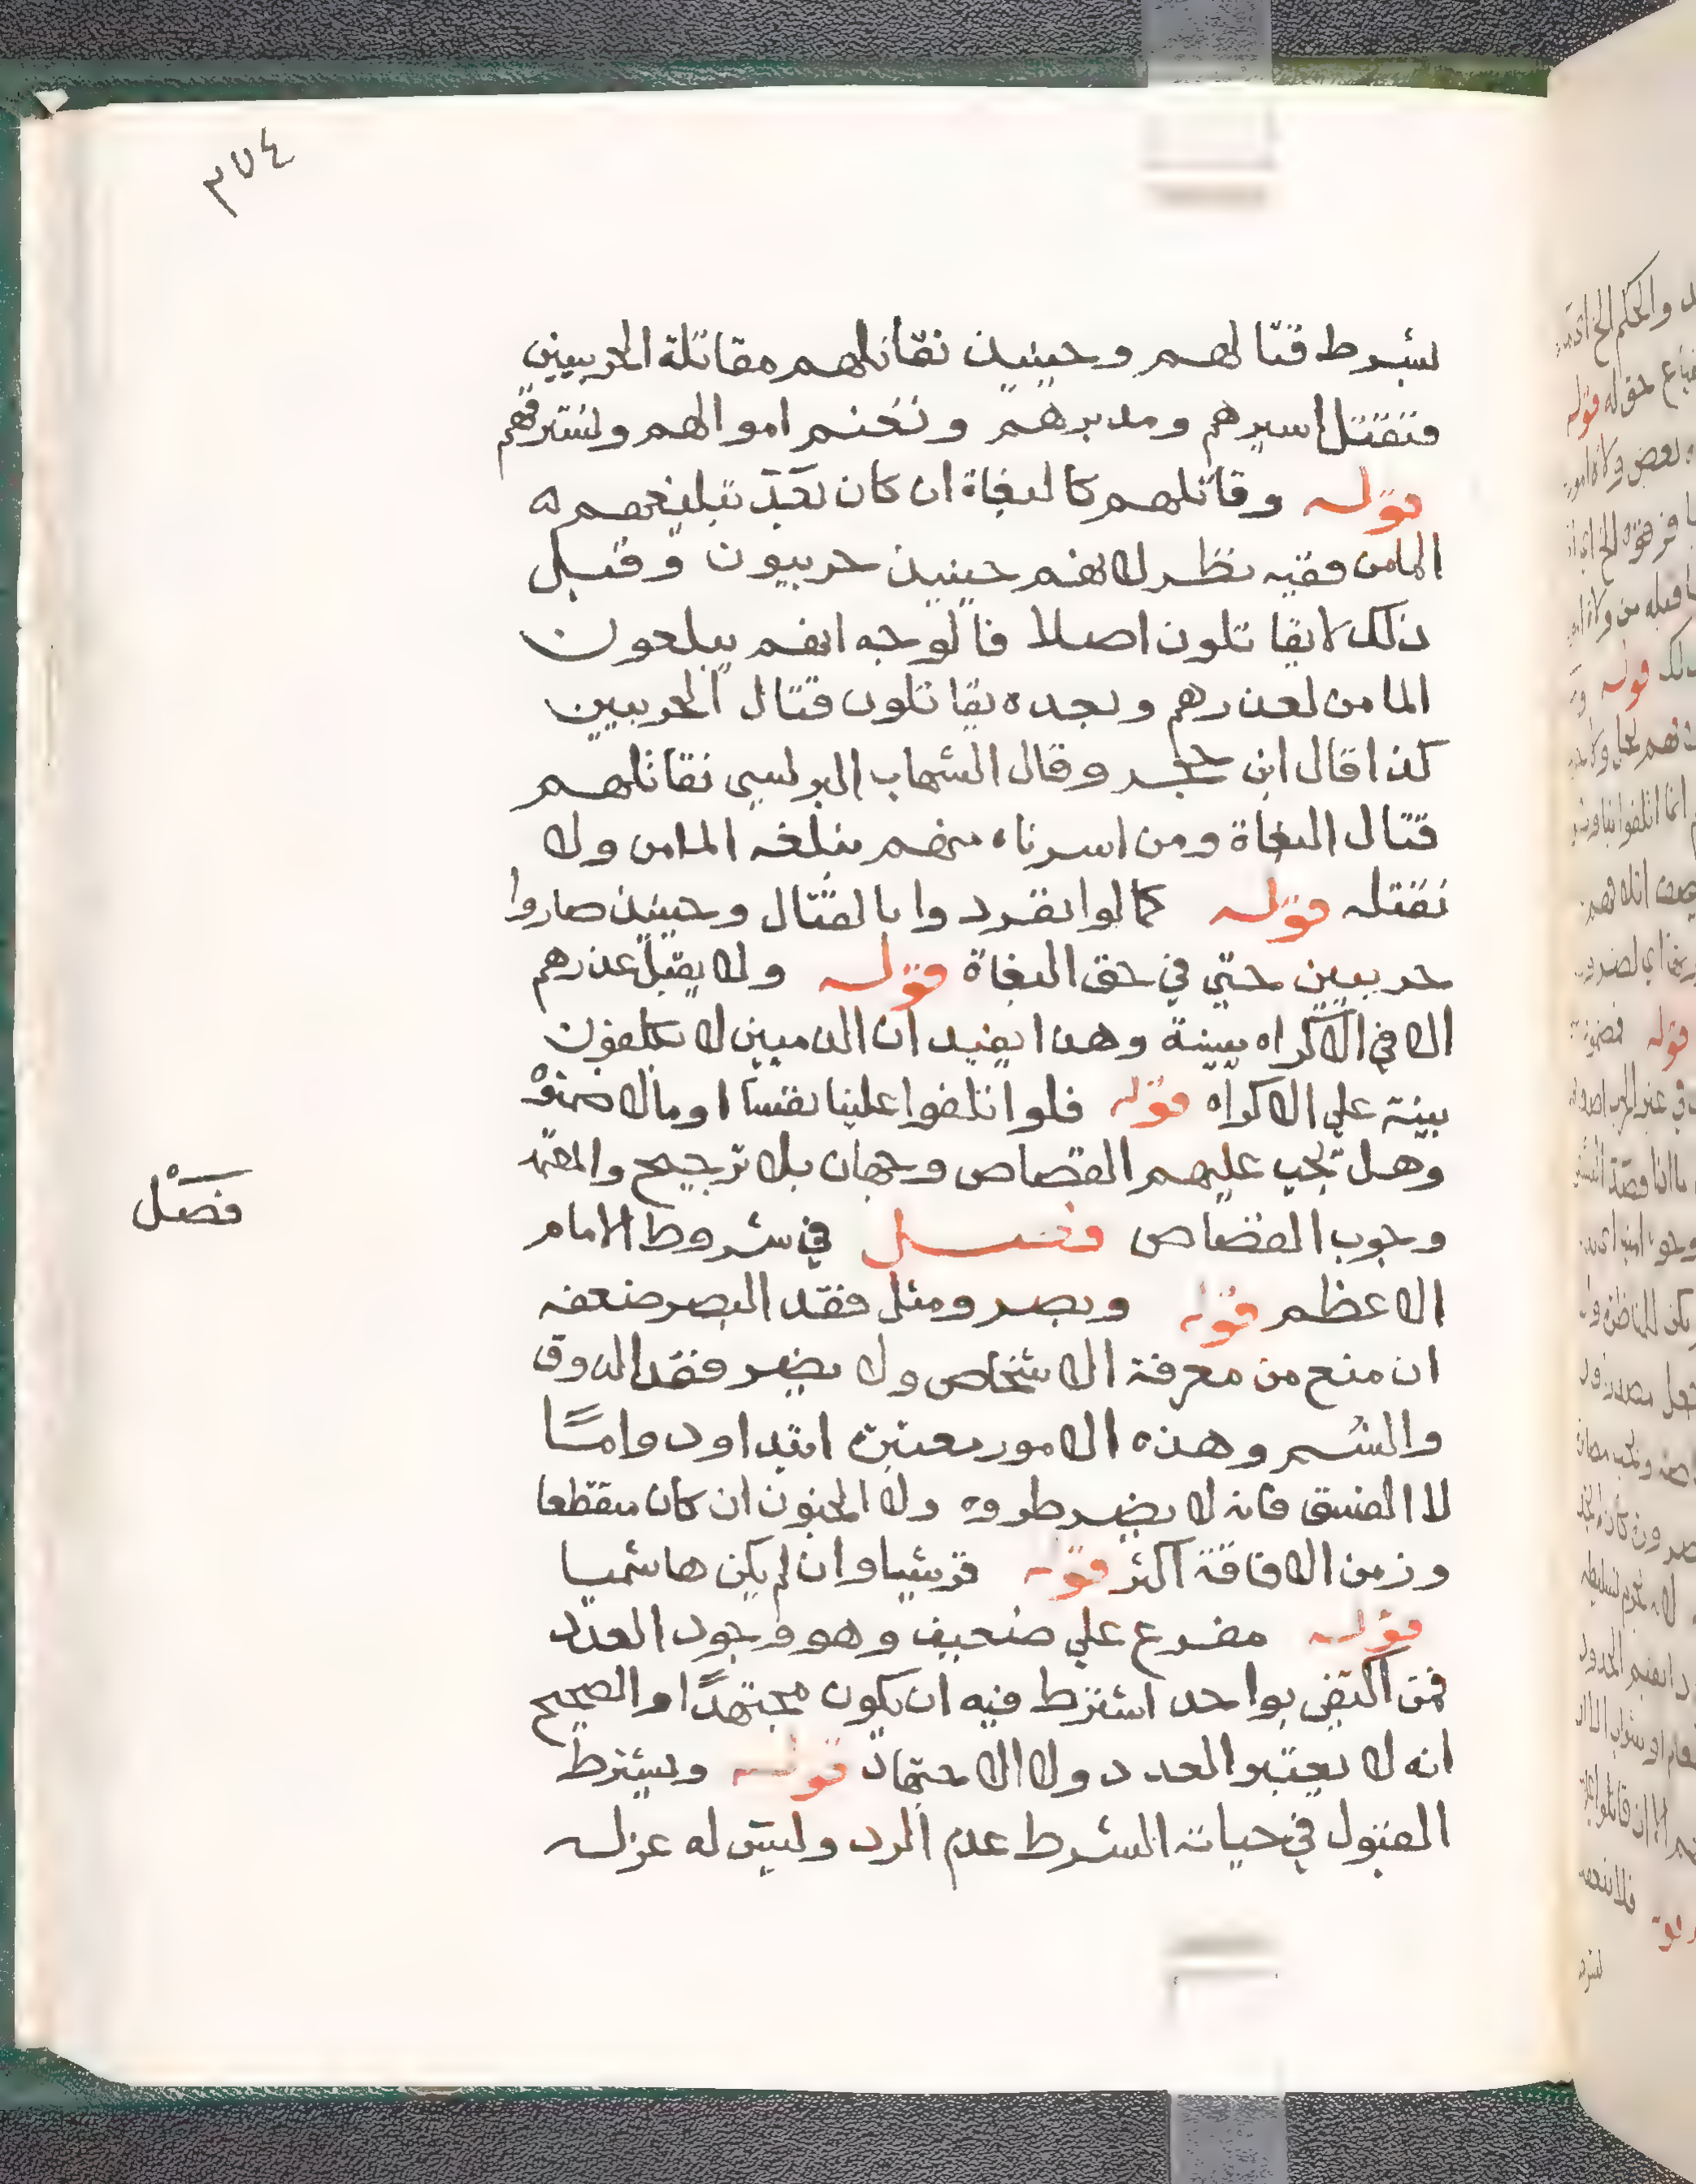 ٣٧٤
بشرط قتالهم وحينيذ نقاتلهم مقاتلة الحربيين
فنقتل اسيرهم ومدبرهم ونغنم اموالهم ونسترقهم
قوله وقاتلهم كالبغاة ان كان بعد تبليغهم له
المامن ففيه نظر لانهم حينيذ حربيون وقبل
ذلك لا يقاتلون اصلا فالوجه انهم يبلغون
المامن لعذرهم وبعده يقاتلون قتال الحربيين
كذا قال ابن حجر وقال الشهاب البرلسي نقاتلهم
قتال البغاة ومن اسرناه منهم نبلغه المامن ولا
نقتله قوله كما لو انفردوا بالقتال وحينيذ صاروا
حربيين حتي في حق البغاة قوله ولا يقبل عذرهم
الا في الاكراه ببينة وهذا يفيد ان الذميين لا يكلفون
بينة علي الاكراه قوله فلو اتلفوا علينا نفسا او مالا ضمنوْ
وهل تجب عليهم القصاص وجهان بلا ترجيح والمعتمد
وجوب القصاص فصل في شروط الامام
فصل
الاعظم قوله وبصر ومثل فقد البصر ضعفه
ان منع من معرفة الاشخاص ولا يضر فقد الذوق
والشم وهذه الامور معتبرة ابتدا ودواما
لا الفسق فانه لا يضر طروه ولا الجنون ان كان متقطعا
وزمن الافاقة اكثر قوله قرشيا وان لم يكن هاشميا
قوله مفرع علي ضعيف وهو وجود العدد
فمن اكتفي بواحد اشترط فيه ان يكون مجتهدًا والصحيح
انه لا يعتبر العدد ولا الاجتهاد قوله ويشترط
القبول في حياته الشرط عدم الرد وليس له عزله